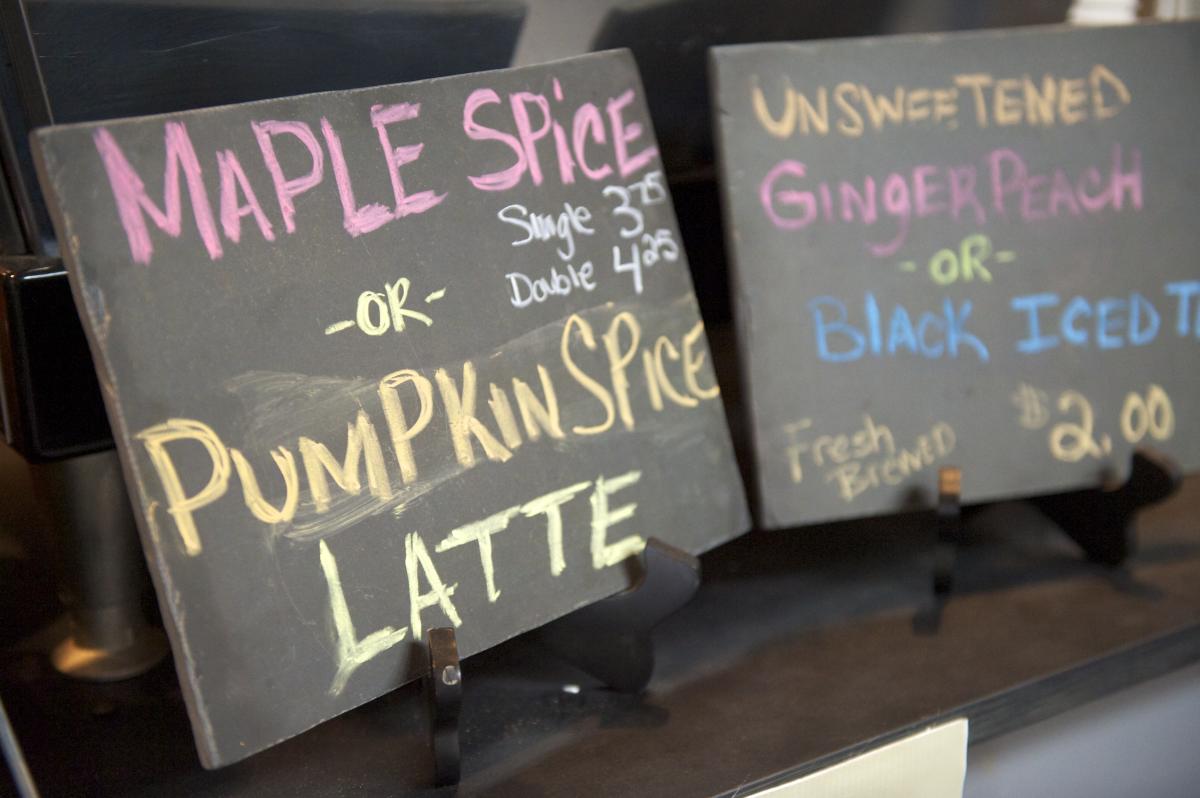 MAPLE SPiCE
Single 3.75
Double 4.25
-OR-
PUMPKIN SPICE
LATTE
UNSWEETENED
GINGER PEACH
-OR-
BLACK ICED T
Fresh
BREWED
$2.00